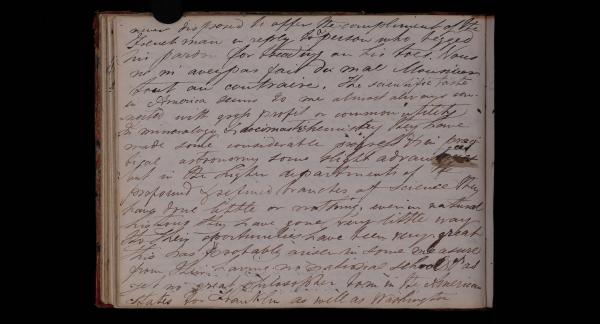 never disposed to offer the compliment of the
Frenchman in reply to a person who begged
his pardon for treading on his toes. Vous
ne m'avez pas fait du mal Monsieur
tout au contraire. The scientific taste
in America seems to me almost always con-
nected with gross profit or common utility
In mineralogy & docimastic chemistry they have
made some considerable progress & in practical
astronomy some slight advances
but in the higher departments of the
profound & refined branches of Science they
have done little or nothing, even in natural
history they have gone very little way
tho their oportunities have been very great
this has probably arisen in some measure
from their having no national school & as
yet no great philosopher born in the American
States for Franklin as well as Washington